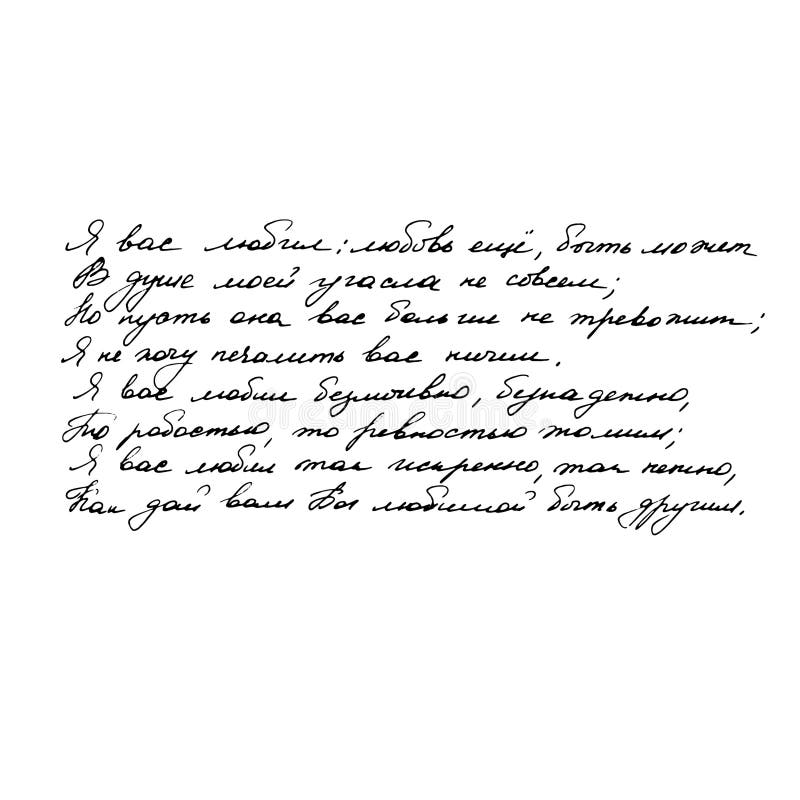 Я вас любил: любовь ещё, быть может
В душе моей угасла не совсем;
Но пусть она вас больше не тревожит;
Я не хочу печалить вас ничем.
Я вас любил безмолвно, безнадежно,
То робостью, то ревностью томим;
Я вас любил так искренно, так нежно,
Как дай вам Бог любимой быть другим.
dreamstime